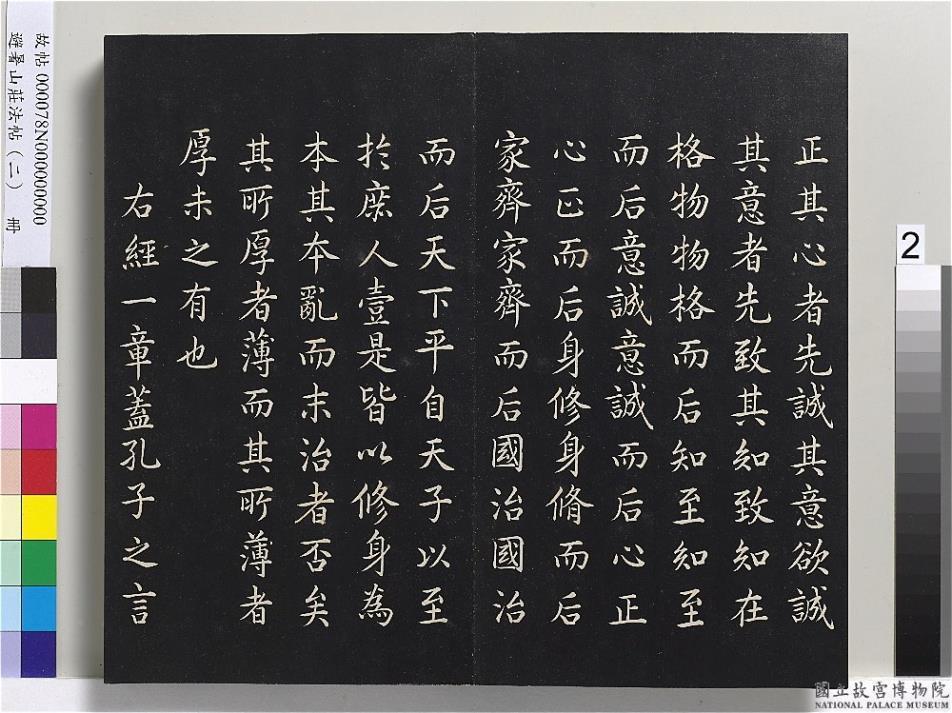 正其心者先誠其意欲誠
其意者先致其知致知在
格物物格而后知至知至
而后意誠意誠而后心正
心正而后身修身脩而后
家齊家齊而后國治國治
而后天下平自天子以至
於庶人壹是皆以修身為
本其本亂而末治者否矣
其所厚者薄而其所薄者
厚未之有也
右經一章蓋孔子之言
故帖 000078N000000000
避暑山莊法帖(二) 冊
2
國立故宮博物院
NATIONAL PALACE MUSEUM